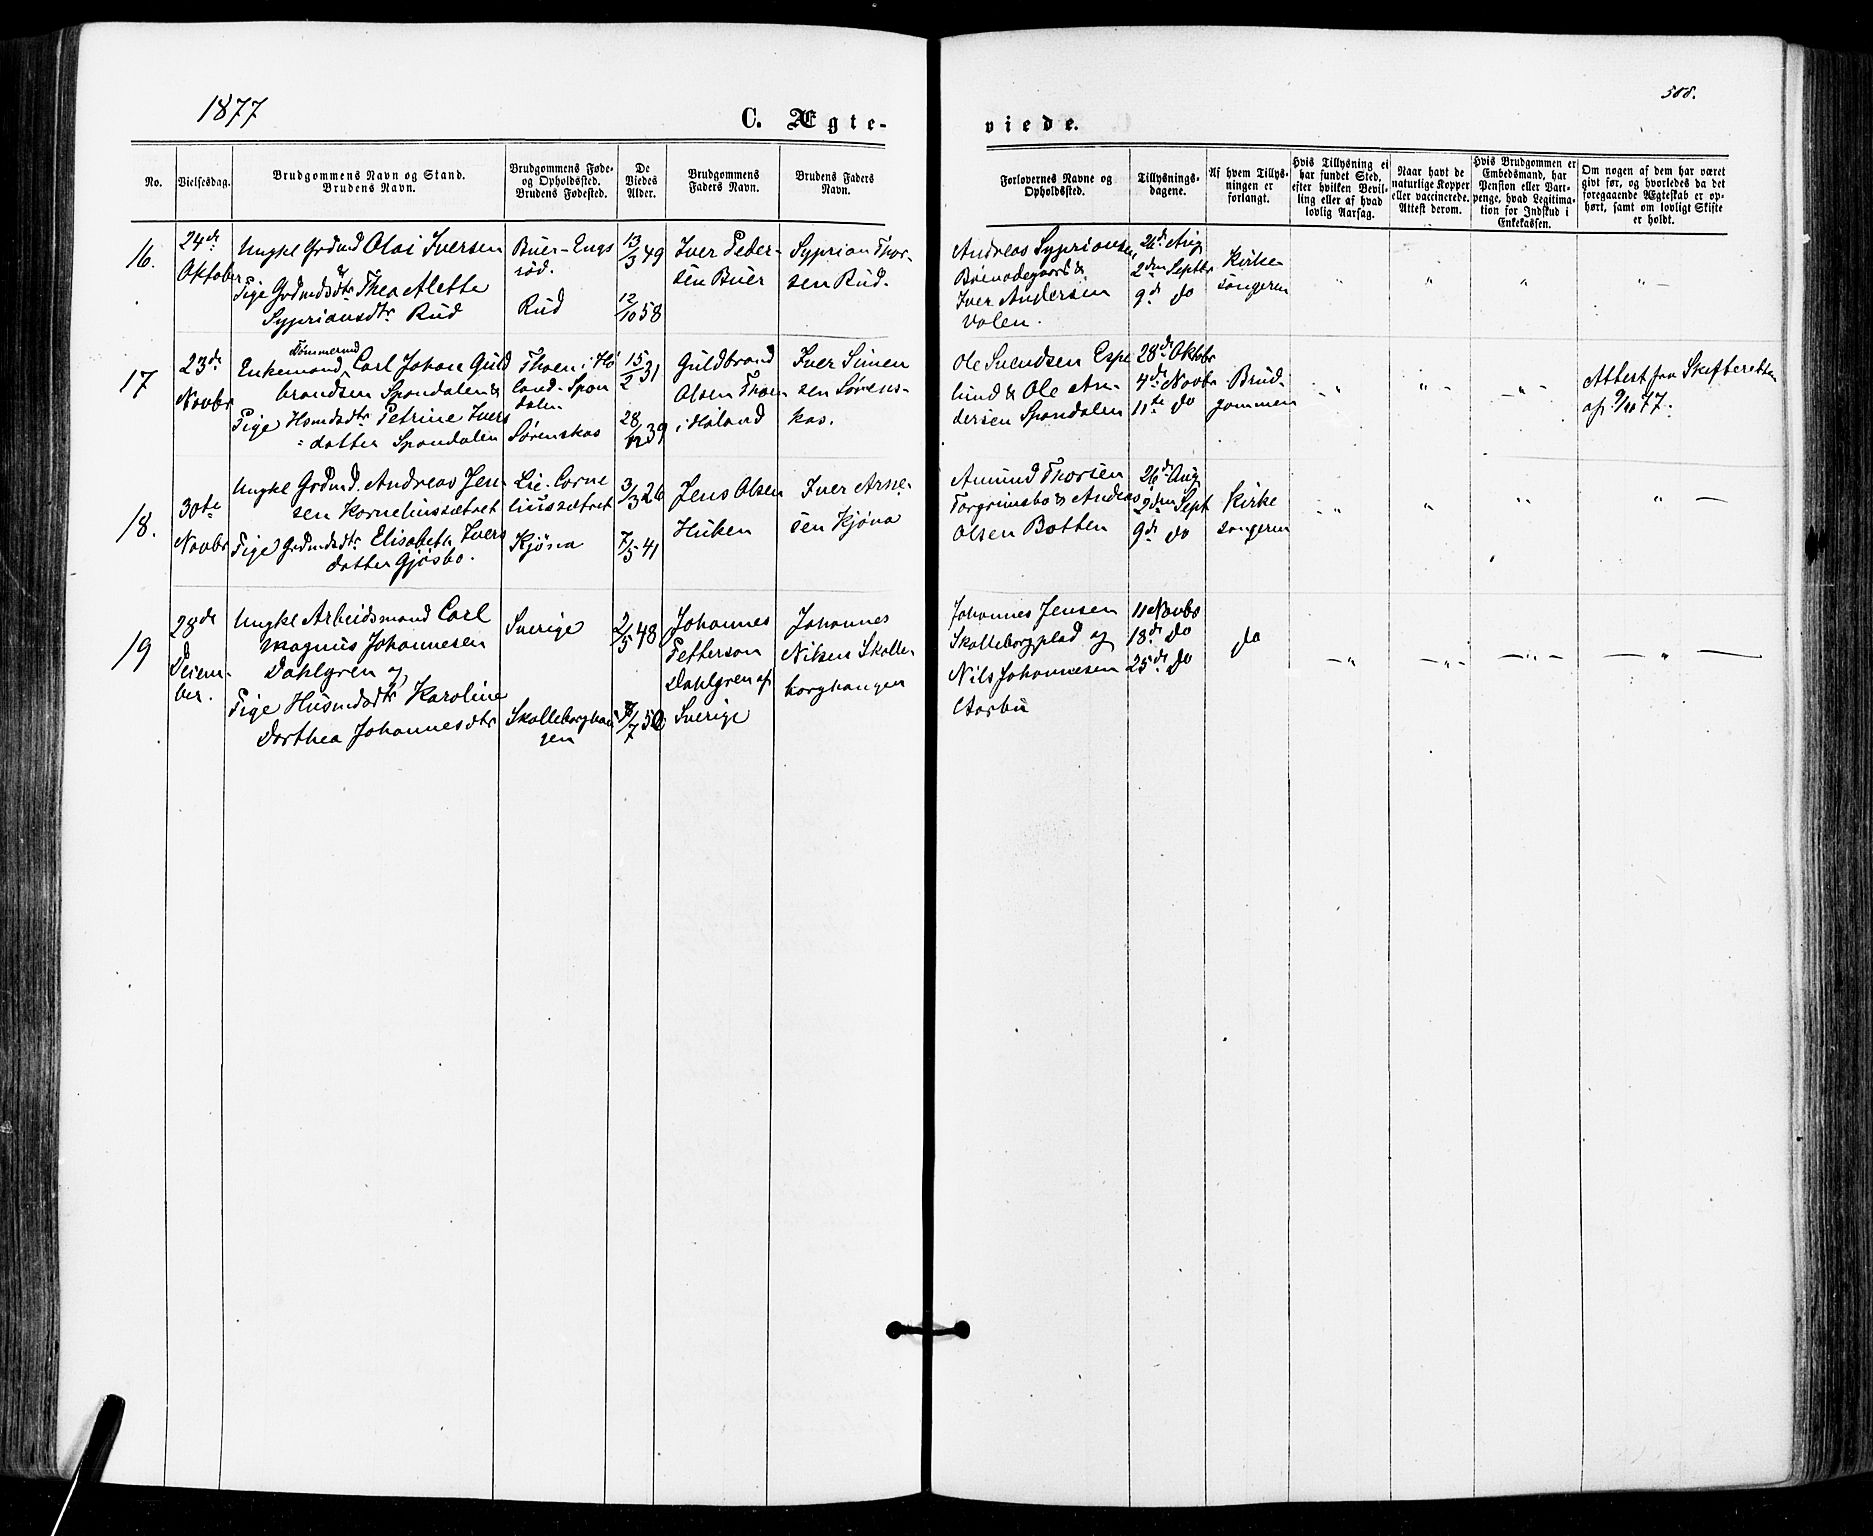 1877
C. Ægte-
viede.
508.
No.
Vielsesdag.
Brudgommens Navn og Stand.
Brudens Navn.
Brudgommens Føde-
og Opholdssted.
Brudens Fødested.
De
Viedes
Alder.
Brudgommens
Faders Navn.
Brudens Faders
Navn.
Forlovernes Navne og
Opholdssted.
Tillysnings-
dagene.
Af hvem Tillys-
ningen er
forlangt.
Hvis Tillysning ei
har fundet Sted,
efter hvilken Bevil-
ling eller af hvad
lovlig Aarsag.
Naar havt de
naturlige Kopper
eller vaccinerede.
Attest derom.
Hvis Brudgommen er
Embedsmand, har
Pension eller Vart-
penge, hvad Legitima-
tion for Indskud i
Enkekassen.
Om nogen af dem har været
givt før, og hvorledes da det
foregaaende Ægteskab er op-
hørt, samt om lovligt Skifte
er holdt.
16.
24de
Oktober
Ungkl Grdmd Olai Iversen
&
Pige Grdmdsdtr Thea Alette
Sypriansdtr Rud
Buer-Engs
rød.
Rud
13/3 49
12/10 58
Iver Peder-
sen Buer
Syprian Thor-
sen Rud.
Andreas Syprionsen
Iver Andersen
Volen.
26de Aug
2den Septbr
9de do
Kirke
sangeren
17
23de
Novbr
Tømmermd
Enkemand Carl Johan Guld
brandsen Spondalen &
Pige Hsmdsdtr Petrine Ivers
=datter Spondalen
Thoen i Hö
land-Spon
dalen
Sørenskas
15/2 31
28/12 39
Guldbrand
Olsen Thoen
i Høland
Iver Simen
sen Sørens-
kas.
Ole Svendsen Espe
lund & Ole An-
dersen Spondalen
28de Oktobr
4de Novbr
11te do
Brud-
gommen
Attest fra Skifteretten
af 9/10 77.
18.
30te
Novbr
Ungkl Grdmd. Andreas Jen-
sen Kornelinssætret
Pige Grdmdsdtr Elisabeth Ivers
datter Gjøsbo.
Lie-Corne
liussætret
Kjøsna
3/3 26
7/5 41
Jens Olsen
Huken
Iver Arne-
sen Kjøna
Amund Thorsen
Torgrimsbo & Andreas
Olsen Botten
26de Aug
2den Sept
9de do
Kirke
sangeren
19
28de
Decem-
ber.
Ungkl Arbeidsmand Carl
Magnus Johannesen
Dahlgren og
Pige Husmdsdtr Karoline
Dorthea Johannesdtr
Sverige
Skolleborghau
gen
2/5 48
7/7 50
Johannes
Petterson
Dahlgren af
Sverige
Johannes
Nilsen Skolle-
borghaugen
Johannes Jensen
Skolleborgplad og
Nils Johannesen
Aarbu
11 Novbr
18de do
25de do
do